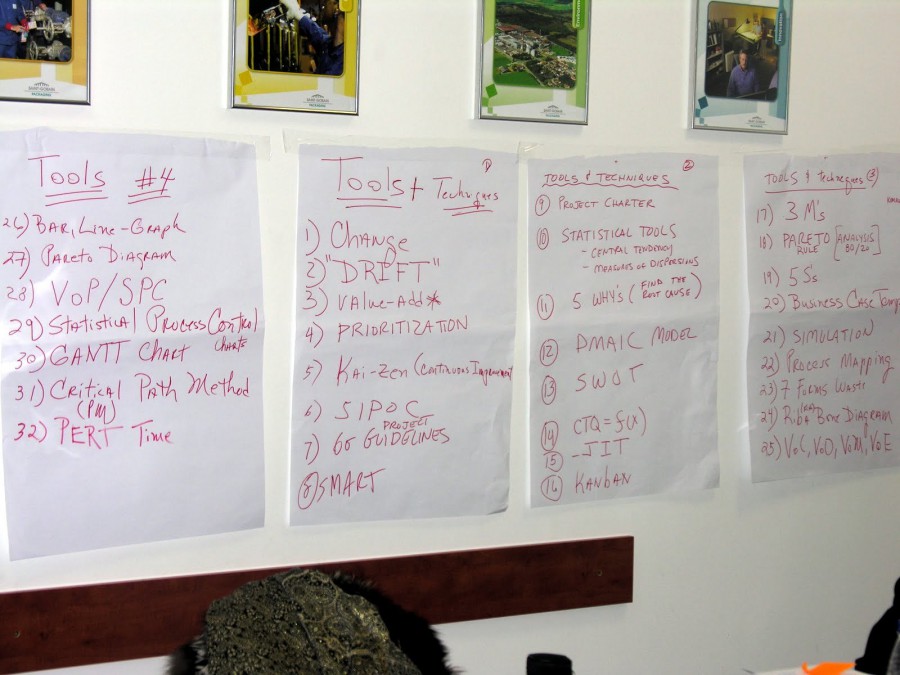 Tools #4
26) BAR, Line-Graph
27) Pareto Diagram
28) VoP/SPC
29) Statistical Process Control
Charts
30) GANTT Chart
31) Critical Path Method
(PM)
32) PERT Time
①
Tools + Techniques
1) Change
2) "DRIFT"
3) Value-Add*
4) PRIORITIZATION
5) Kai-Zen (Continuous Improvement
6) SIPOC
PROJECT
7) 6σ GUIDELINES
⑧ SMART
②
TOOLS & TECHNIQUES
⑨ PROJECT CHARTER
⑩ STATISTICAL TOOLS
- CENTRAL TENDENCY
- MEASURES OF DISPERSIONS
⑪ 5 WHY'S (FIND THE
ROOT CAUSE)
⑫ DMAIC MODEL
⑬ SWOT
⑭ CTQ = f(x)
⑮ -JIT
⑯ KANBAN
TOOLS & Techniques ③
17) 3 M's
18) PARETO [ANALYSIS
RULE 80/20]
19) 5 S's
20) Business Case Temp
21) SIMULATION
22) Process Mapping
23) 7 Forms Waste
24) Bone Diagram
25) VoC, VoD, VoM, VoE